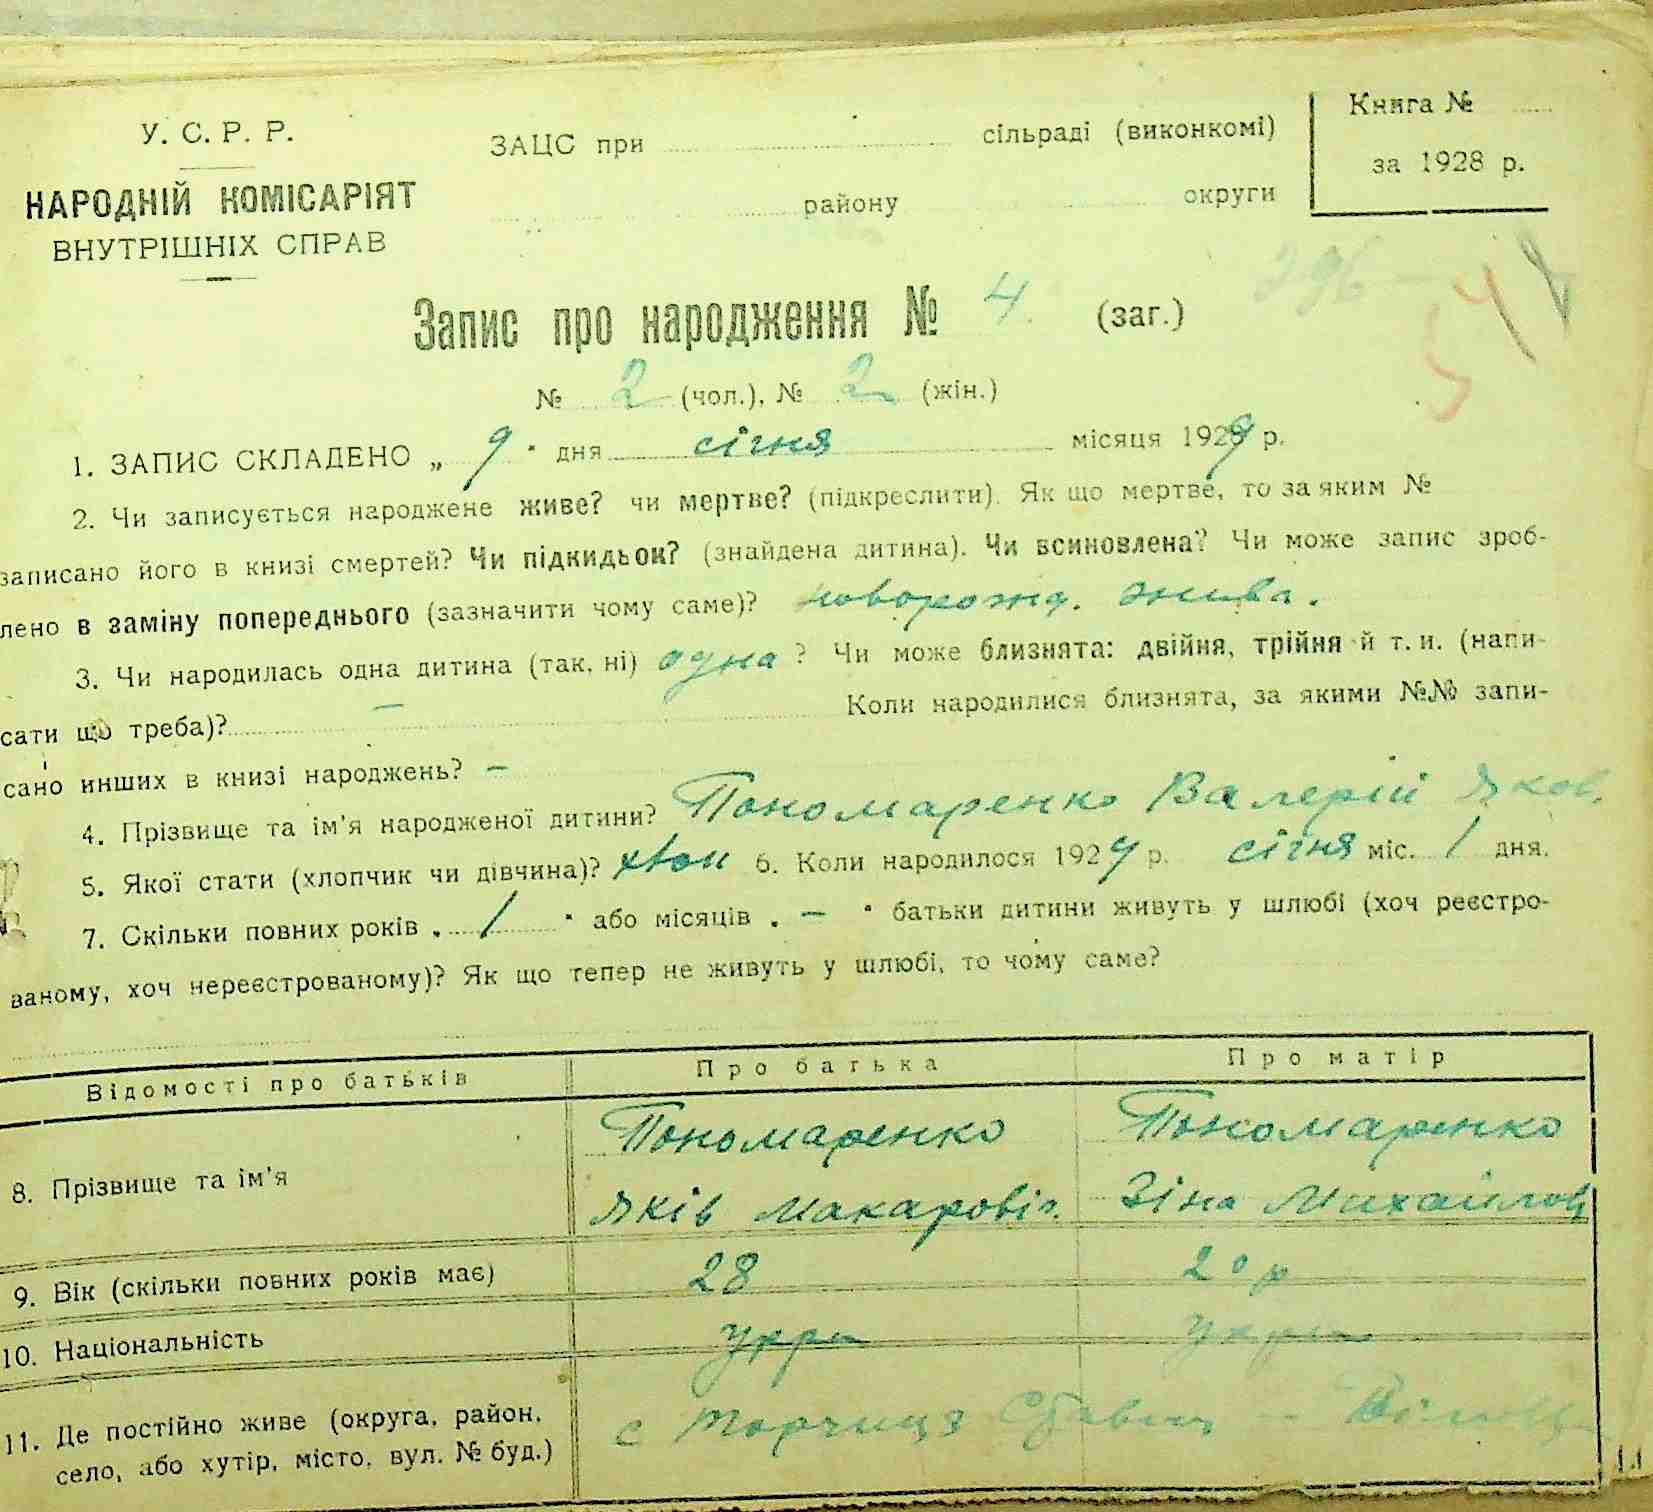 У. С. Р. Р.
НАРОДНІЙ КОМІСАРІЯТ
ВНУТРІШНІХ СПРАВ
ЗАЦС при сільраді (виконкомі)
району округи
Книга №
за 1928 р.
Запис про народження № 4. (заг.)
№ 2 (чол.), № 2 (жін.)
1. ЗАПИС СКЛАДЕНО „ 9 " дня січня місяця 1929 р.
2. Чи записується народжене живе? чи мертве? (підкреслити). Як що мертве, то за яким №
записано його в книзі смертей? Чи підкидьок? (знайдена дитина). Чи всиновлена? Чи може запис зроб-
лено в заміну попереднього (зазначити чому саме)? новорожд. жива.
3. Чи народилась одна дитина (так, ні) одна ? Чи може близнята: двійня, трійня й т. и. (напи-
сати що треба)? — Коли народилися близнята, за якими №№ запи-
сано инших в книзі народжень? —
4. Прізвище та ім'я народженої дитини? Пономаренко Валерій Яков.
5. Якої стати (хлопчик чи дівчина)? 6. Коли народилося 1929 р. січня міс. 1 дня.
7. Скільки повних років „ 1 " або місяців „ — " батьки дитини живуть у шлюбі (хоч реєстро-
ваному, хоч нереєстрованому)? Як що тепер не живуть у шлюбі, то чому саме?
Відомості про батьків Про батька Про матір
8. Прізвище та ім'я
Пономаренко Пономаренко
Яків Макаровіч. Зіна Михайлов
9. Вік (скільки повних років має) 28 20 р
10. Національність укра укра
11. Де постійно живе (округа, район,
село, або хутір, місто, вул. № буд.)
с Торчиця